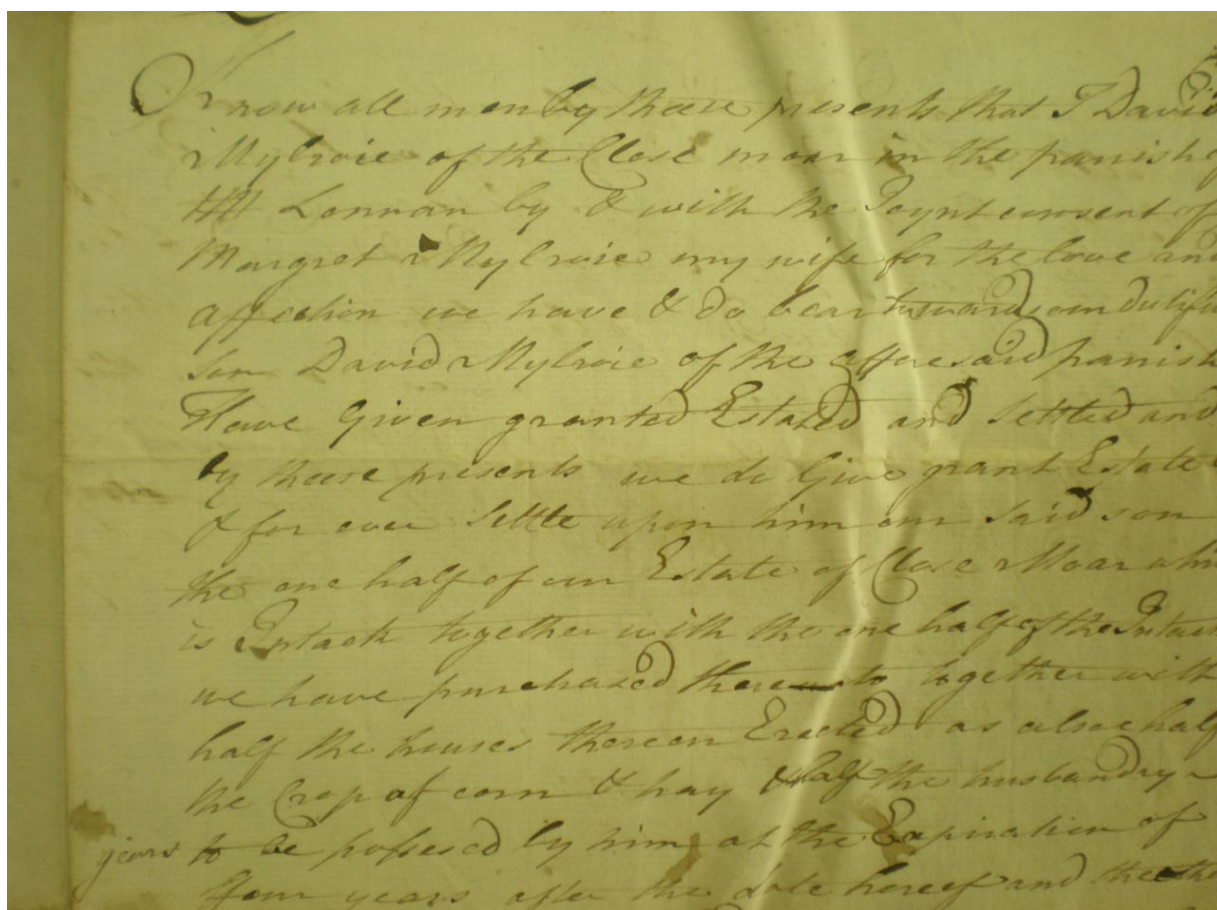 Know all men by these presents that I David
Mylroie of the Close moar in the parish of
KK Lonnan by & with the Joynt consent of
Margret Mylroie my wife for the love and
affection we have & do bear toward our dutifu
Son David Mylroie of the afforesaid parish
Have Given granted Estated and Settled and
by these presents we do Give grant Estate
& for ever Settle upon him our said son
the one half of our Estate of Close Moar whi
is Intack together with the one half of the Intac
we have purchased thereunto together with
half the houses thereon Erected as also half
the Crop of corn & hay & half the husbandry
years to be possesed by him at the Expiration of
four years after the date hereof and the othe